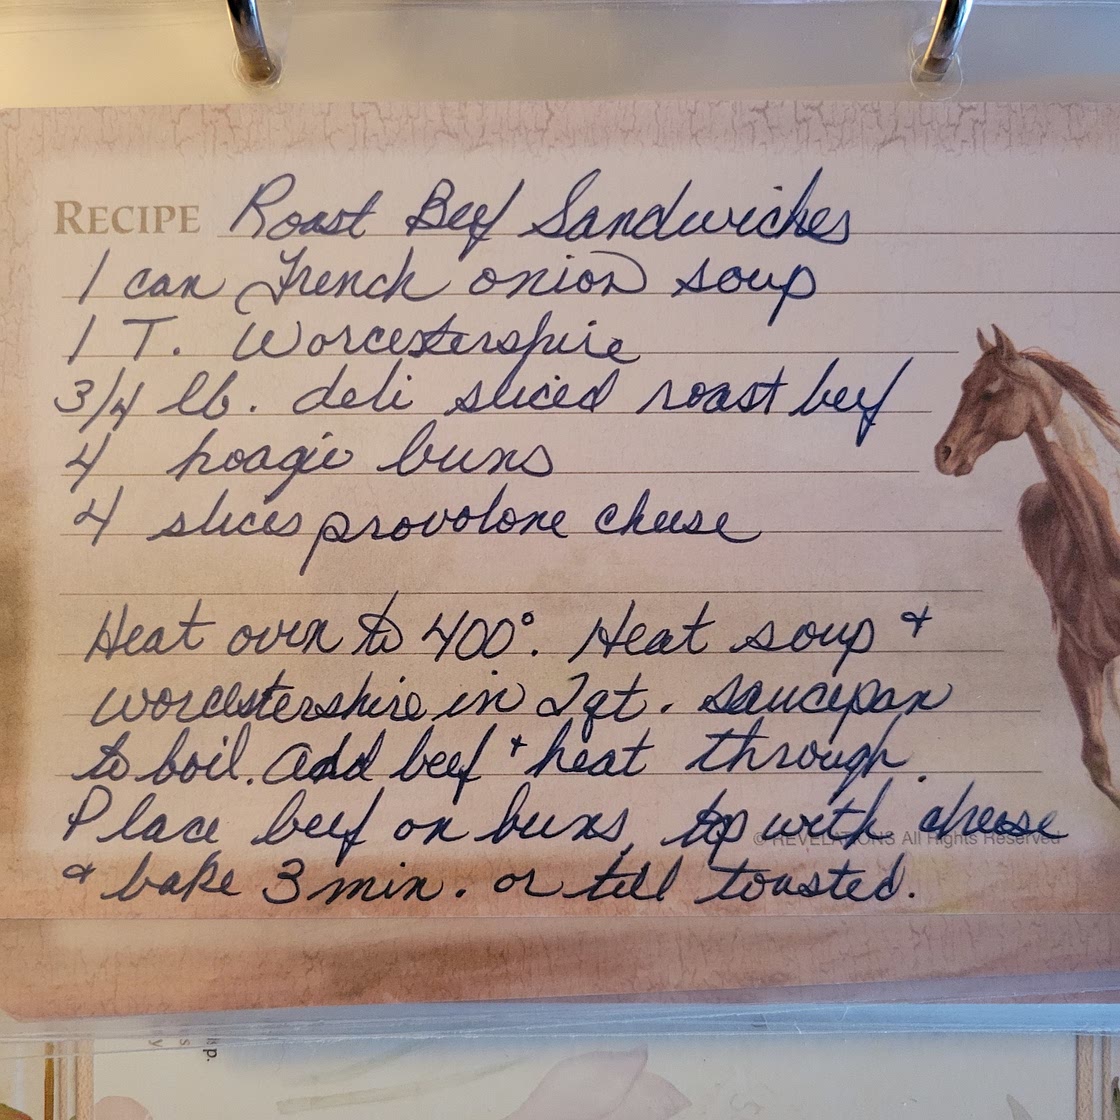 RECIPE Roast Beef Sandwiches
1 can French onion soup
1 T. Worcestershire
3/4 lb. deli sliced roast beef
4 hoagie buns
4 slices provolone cheese
Heat oven to 400°. Heat soup &
worcestershire in 2 qt. saucepan
to boil. Add beef & heat through.
Place beef on buns, top with cheese
© REVELATIONS All Rights Reserved
& bake 3 min. or till toasted.